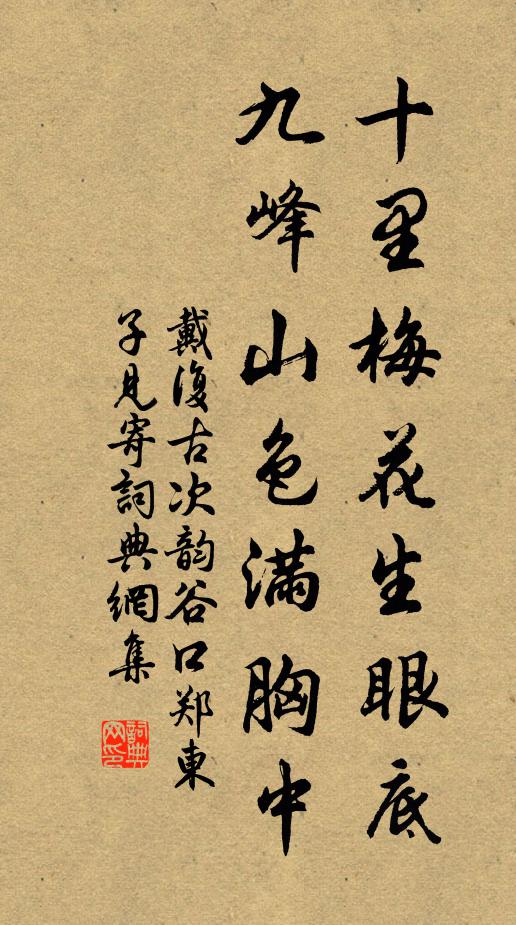 十里梅花生眼底
九峰山色满胸中
戴復古次韵谷口郑東
子見寄詞典網集
詞典
网印